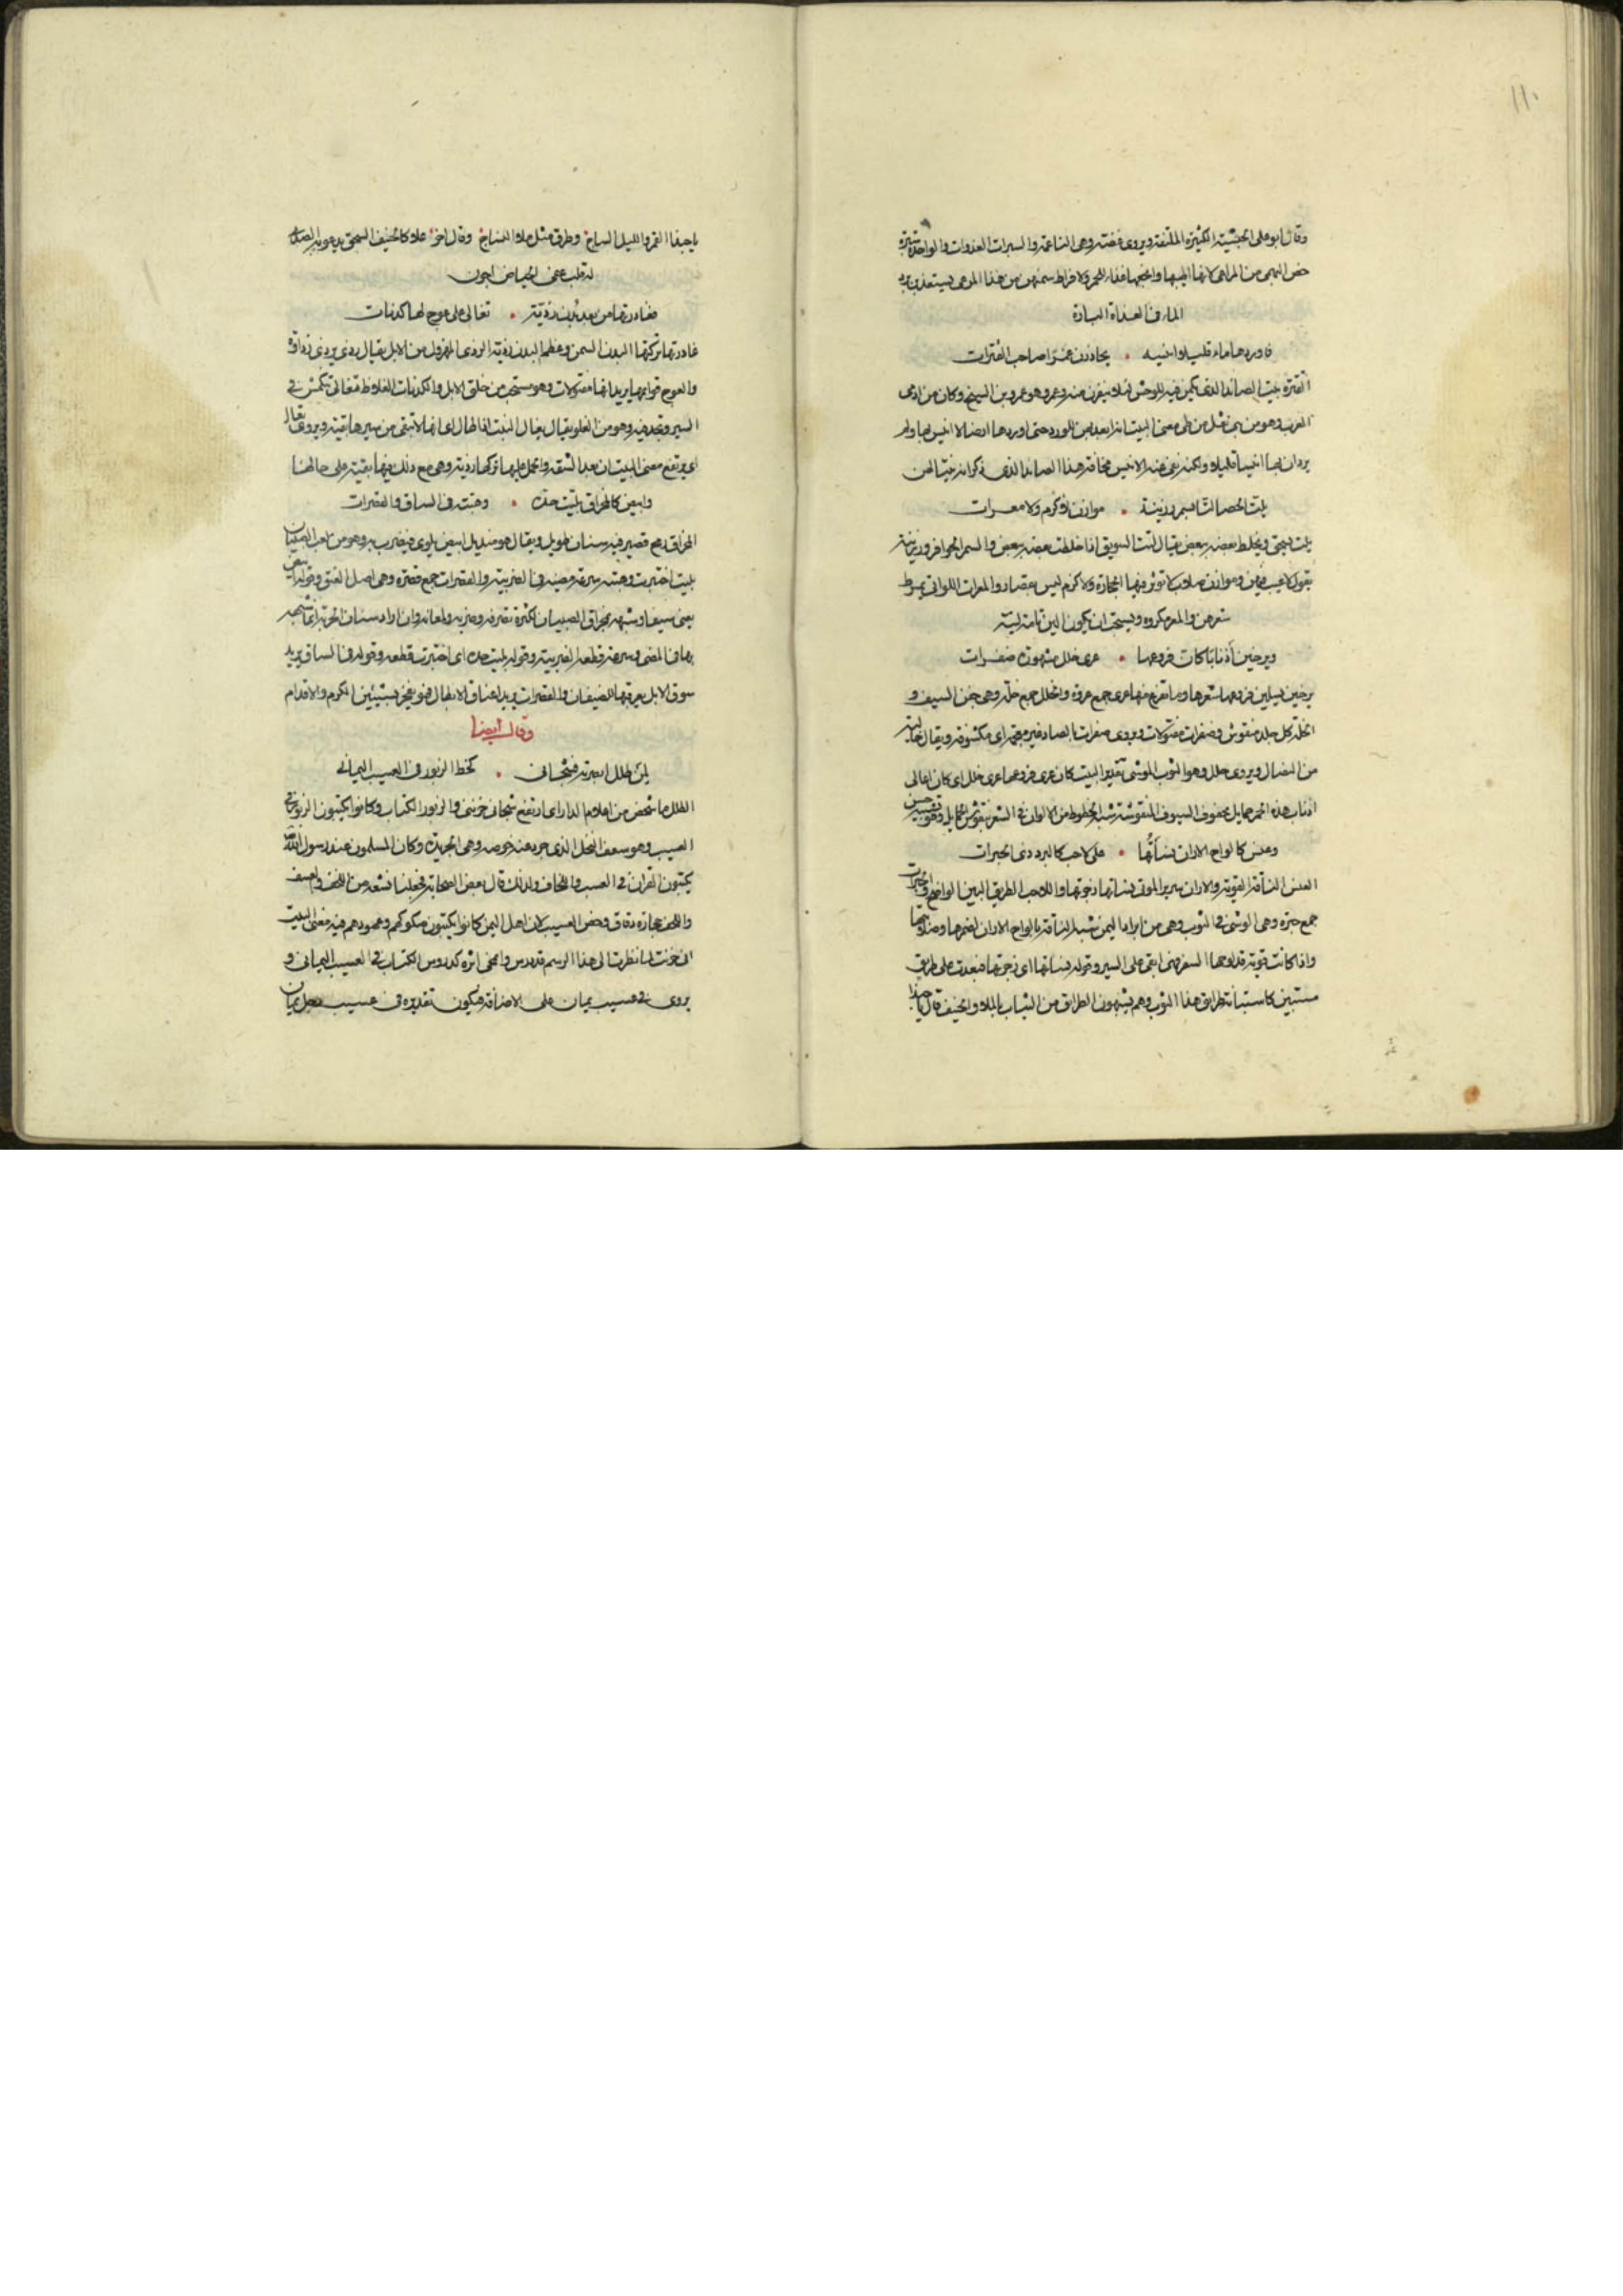 ١١٠
وقال ابو على الجشيشه الكثيرة الملتفة ويروى غضة وهى الناعمة والسبرات الغدوات والواحدة سبرة
خص البهمى من المراعى لانها اطيبها وانجعها غذاء للحمر ولافراط سمنهن من هذا المرعى يستعذبن برد
الماء فى الغداة الباردة
فاوردها ماء قليلا انيسه • يحاذرن عمرا صاحب القترات
القترة بيت الصائد الذى يكمن فيه للوحش لئلا ينفرن منه وعمرو هو عمرو بن المسيح وكان من ارمى
العرب وهو من بنى ثعل من طى معنى البيت انه ابعد بهن الورد حتى اوردها ارضا لا انيس بها ولم
يرد ان بها انيسا قليلا ولكنه نفى عنه الانيس مخافة هذا الصائد الذى ذكر انه خبيئا لهن
يلت الحصا لتا بسمر رزينة • موازن لا كزم ولا معرات
يلت يسحق ويخلط بعضه ببعض يقال لتت السويق اذا خلطت بعضه ببعض والسمر الحوافر ورزينة
يقول لا عيب فيهن وموازن صلاب لا تؤثر فيها الحجارة ولا كزم ليس بقصار والمعرات اللواتى يمرط
شعرهن والمعر مكروه ويستحب ان يكون الثنن تامة لينة
ويرخين أذنابا كان فروعها • عرى خلل مشهورة ضفرات
يرخين يسبلن فروعها شعرها وما تفرع منها عرى جمع عروة والخلل جمع خلة وهى جفن السيف و
الخلة كل جلد منقوش وضفرات مفتولات ويروى صفرات بالصاد غير معجمة اى مكشوفة ويقال خالية
من النصال ويروى حلل وهو الثوب الموشى تقدير البيت كان عرى فروعها عرى خلل اى كان اعالى
اذناب هذه الحمر حمايل جفون السيوف المنقوشة شبه الخطوط من الالوان فى الشعر بنقوش الحمايل وهو تشبيه حسن
وعنس كالواح الاران نسأتها • على لاحب كالبرد ذى الحبرات
العنس الناقة القوية والاران سرير الموتى نسأتها زجرتها واللاحب الطريق البين الواضح والحبرات
جمع حبرة وهى الوشى فى الثوب وهى من ابراد اليمن شبه الناقة بالواح الاران لضمرها وصلابتها
واذا كانت قوية قد لوحها السفر فهى ابقى على السير وقوله نسأتها اى زجرتها فبعدت على طريق
مستبين كاستبانة طرائق هذا الثوب وهم يشبهون الطرائق من الثياب بالملاء والخنيف قال يا حبذا
يا حبذا القمر والليل الساج وطرق مثل ملاء النساج وقال اخر علا كالخنيف السحق يدعو به الصدا
له قلب عفى الحياض اجون
فغادرتها من بعد بدن رذية • تغالى على عوج لها كدنات
غادرتها تركتها البدن السمن وعظم البدن رذية الرذى المهزول من الابل يقال رذى يرذى رذاوة
والعوج قوايمها يريد انها مفتولات وهو مستحب من خلق الابل والكدنات الغلاظ تغالى تنكمش فى
السير وتجد فيه وهو من الغلو يقال يغال النبت اذا طال اى انها لا تبقى من سيرها بقية ويروى تعالى
اى يرتفع معنى البيت ان بعد الشقة والحمل عليها تركها رذية وهى مع ذلك فيها بقية على حالها
وابيض كالمخراق بليت حده • وهبته فى الساق والقصرات
المخراق رمح قصير فيه سنان طويل ويقال هو منديل ابيض يلوى فيضرب به وهو من لعب الصبيان
بليت اختبرت وهبته سرعة مضيه فى الضريبة والقصرات جمع قصرة وهى اصل العنق وقوله ابيض
يعنى سيفا وشبهه بمخراق الصبيان لكثرة تصرفه وضربه ولمعانه وان اراد سنان الحربة انما شبهه
بها فى المضى وسرعة قطعه الضريبة وقوله بليت حده اى اختبرت قطعه وقوله فى الساق يريد
سوق الابل يعرقبها للضيفان والقصرات يريد اعناق الابطال فهو يفخر بشيئين الكرم والاقدام
وقال ايضا
لمن طلل ابصرته فشجانى • كخط الزبور فى العسيب اليمانى
الطلل ما شخص من اعلام الدار اى ارتفع شجانى حزننى والزبور الكتاب وكانوا يكتبون الزبور فى
العسيب وهو سعف النخل الذى جرد عنه خوصه وهى الجريدة وكان المسلمون عند رسول الله
يكتبون القران فى العسب واللخاف ولذلك قال بعض الصحابة فجعلنا نتتبعه من اللخف والعسف
واللخف حجارة دقاق وخص العسيب لان اهل اليمن كانوا يكتبون صكوكهم وعهودهم فيه معنى البيت
انى حزنت لما نظرت الى هذا الرسم قد درس وامحى اثره كدروس الكتاب فى العسيب اليمانى و
يروى فى عسيب يمان على الاضافة فيكون تقديره فى عسيب رجل يمان